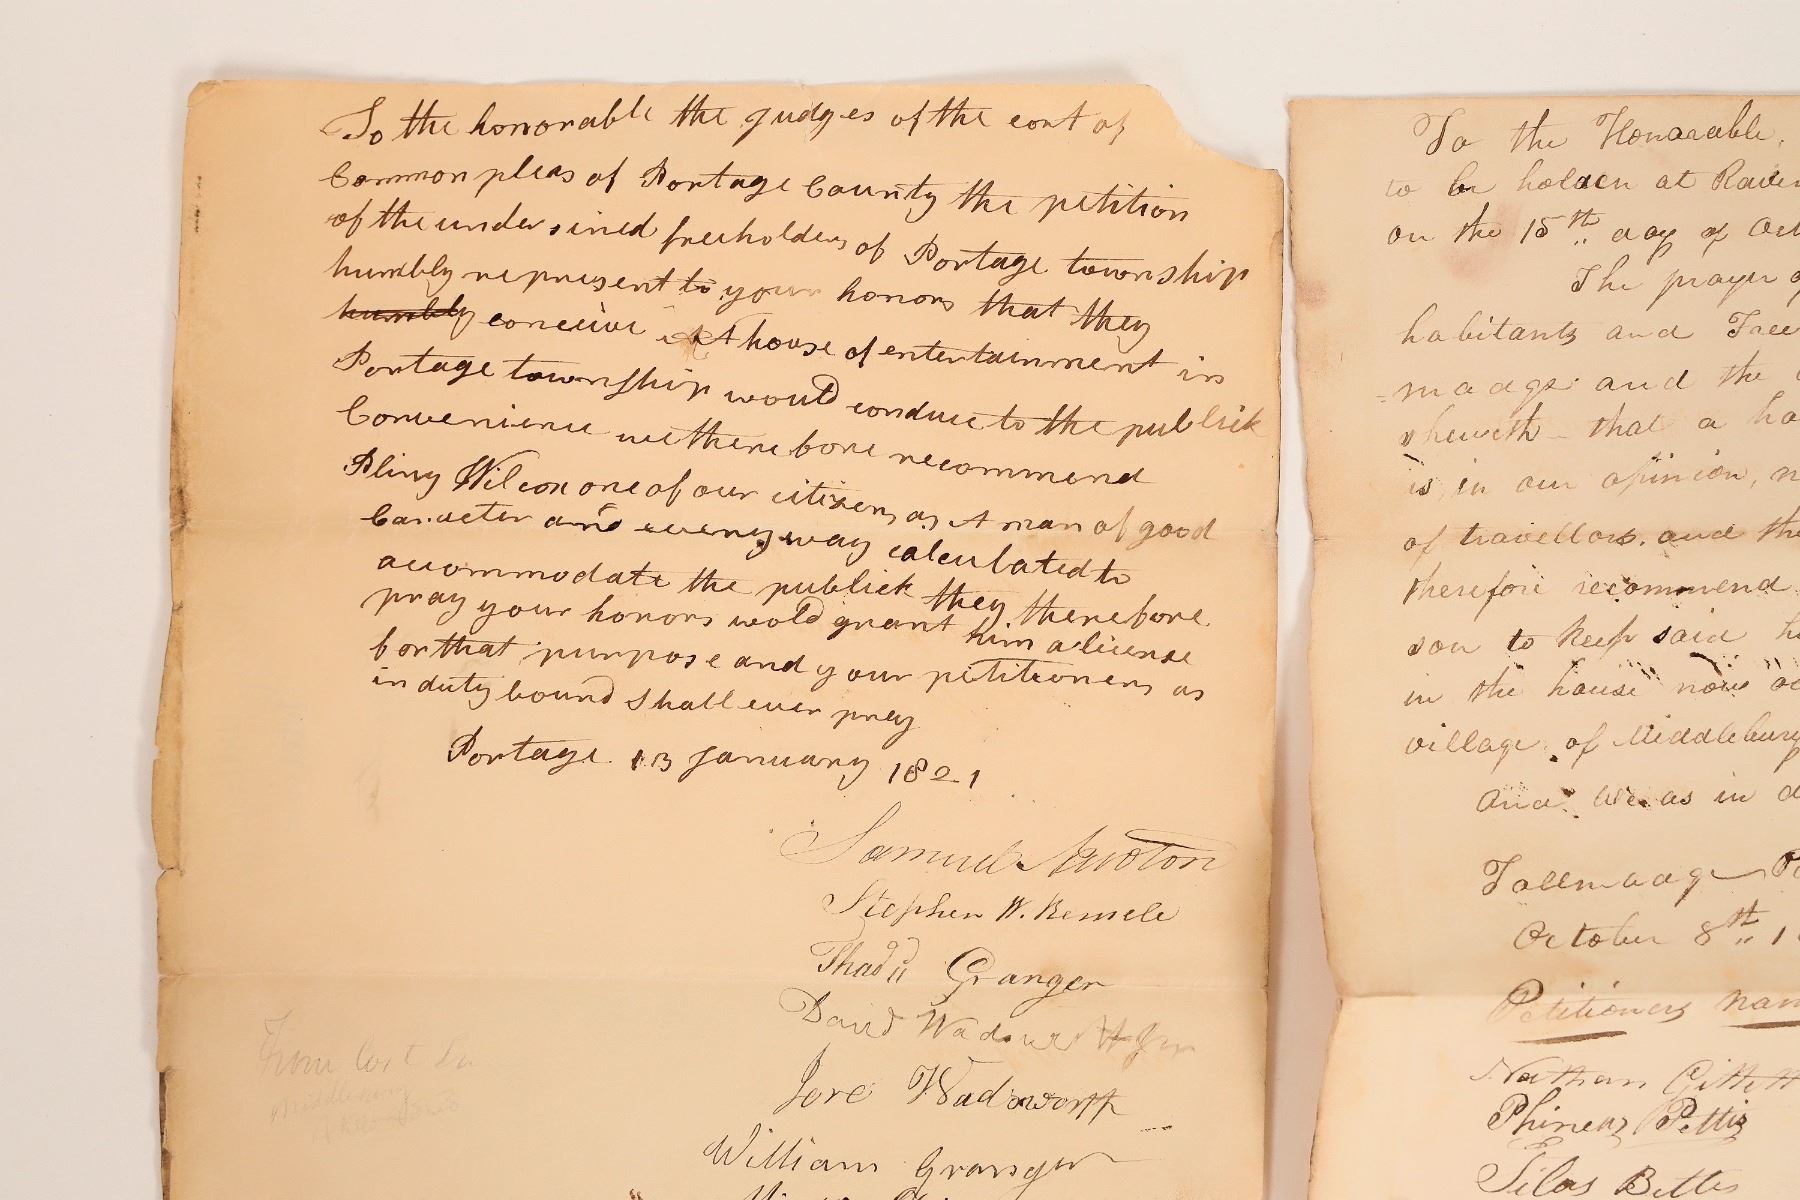 To the honorable the judges of the cort of
Common pleas of Portage County the petition
of the undersined freeholders of Portage township
humbly represent to your honors that they
humbly conceive that A house of entertainment in
Portage township would conduce to the publick
Convenience we therefore recommend
Pliny Wilcox one of our citizens as A man of good
Caracter and every way calculated to
accommodate the publick they therefore
pray your honors wold grant him a license
for that purpose and your petitioners as
in duty bound shall ever prey
Portage 13 January 1821
Samuel Newton
Stephen W. Bemele
Thads Granger
David Wadsworth Jun
Jere Wadsworth
William Granger
From
Middlebury
To the Honorable,
to be holden at Raven
on the 15th day of Oct
The prayer of
habitants and Free
madge and the
sheweth that a ho
is, in our opinion, n
of travellors. and the
therefore recommend
son to keep said h
in the house now oc
village of Middlebury
And we as in d
Tallmadge Po
October 8th 1
Petitioners nam
Nathan Gillett
Phineas Pettis
Silas Bettes